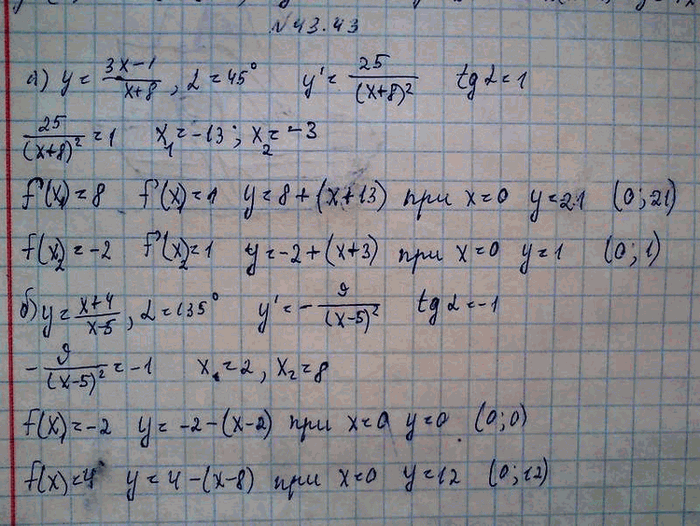 №43.43
а) y = \frac{3x-1}{x+8}, α = 45° y' = \frac{25}{(x+8)^2} tg α = 1
\frac{25}{(x+8)^2} = 1 x_1 = -13; x_2 = -3
f(x_1) = 8 f'(x_1) = 1 y = 8 + (x+13) при x=0 y=21 (0; 21)
f(x_2) = -2 f'(x_2) = 1 y = -2 + (x+3) при x=0 y=1 (0; 1)
б) y = \frac{x+4}{x-5}, α = 135° y' = -\frac{9}{(x-5)^2} tg α = -1
-\frac{9}{(x-5)^2} = -1 x_1 = 2, x_2 = 8
f(x) = -2 y = -2 - (x-2) при x=0 y=0 (0; 0)
f(x) = 4 y = 4 - (x-8) при x=0 y=12 (0; 12)